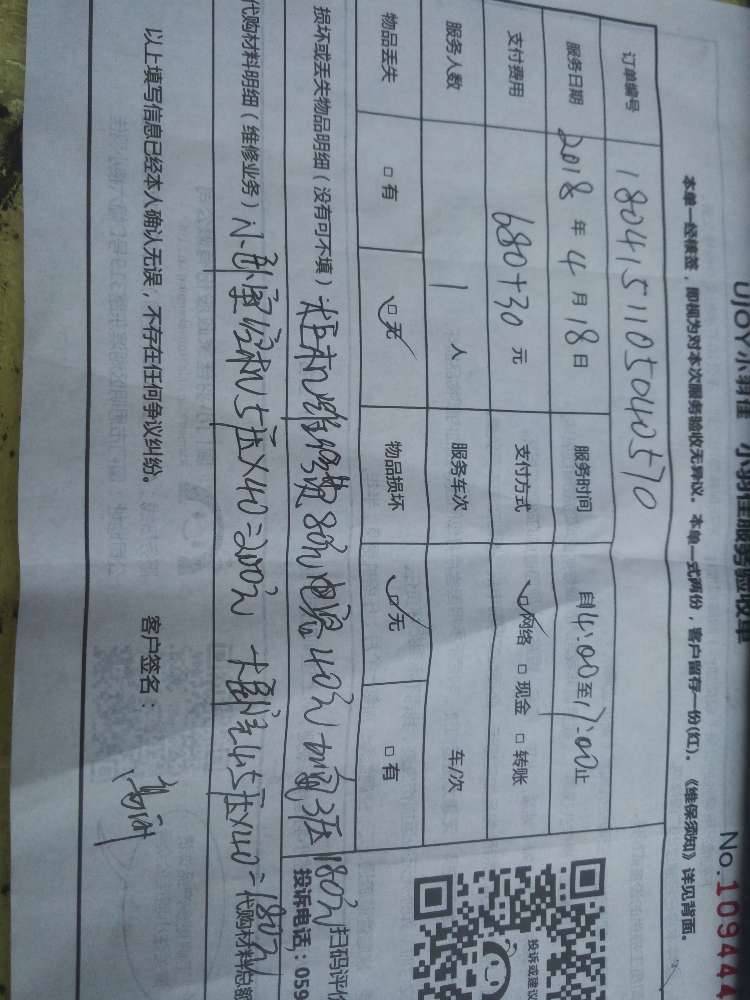 UJOY小羽佳 小羽佳服务验收单
No.109444
本单一经核签，即视为对本次服务验收无异议。本单一式两份，客户留存一份(红)。《维保须知》详见背面。
订单编号 1804151105040570
服务日期 2018年4月18日 服务时间 自14:00至17:00止
支付费用 680+30元 支付方式 ☑网络 □现金 □转账
服务人数 1人 服务车次 车/次
物品丢失 □有 ☑无 物品损坏 ☑无 □有
损坏或丢失物品明细（没有可不填）柜机维修费80元电容40元加氟3压180元
代购材料明细（维修业务）小卧室挂机5压×40=200元 大卧室4.5压×40=180元
扫码评价
投诉电话：059
投诉或建议
代购材料总额
以上填写信息已经本人确认无误，不存在任何争议纠纷。 客户签名：